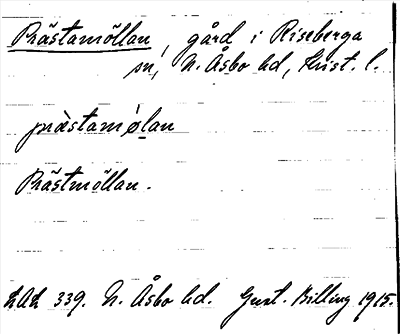 Prästamöllan gård i Riseberga
sn, N. Åsbo hd, Krist. l.
prästamø̀lan
Prästmöllan.
LAL 339. N. Åsbo hd. Gust. Billing 1915.